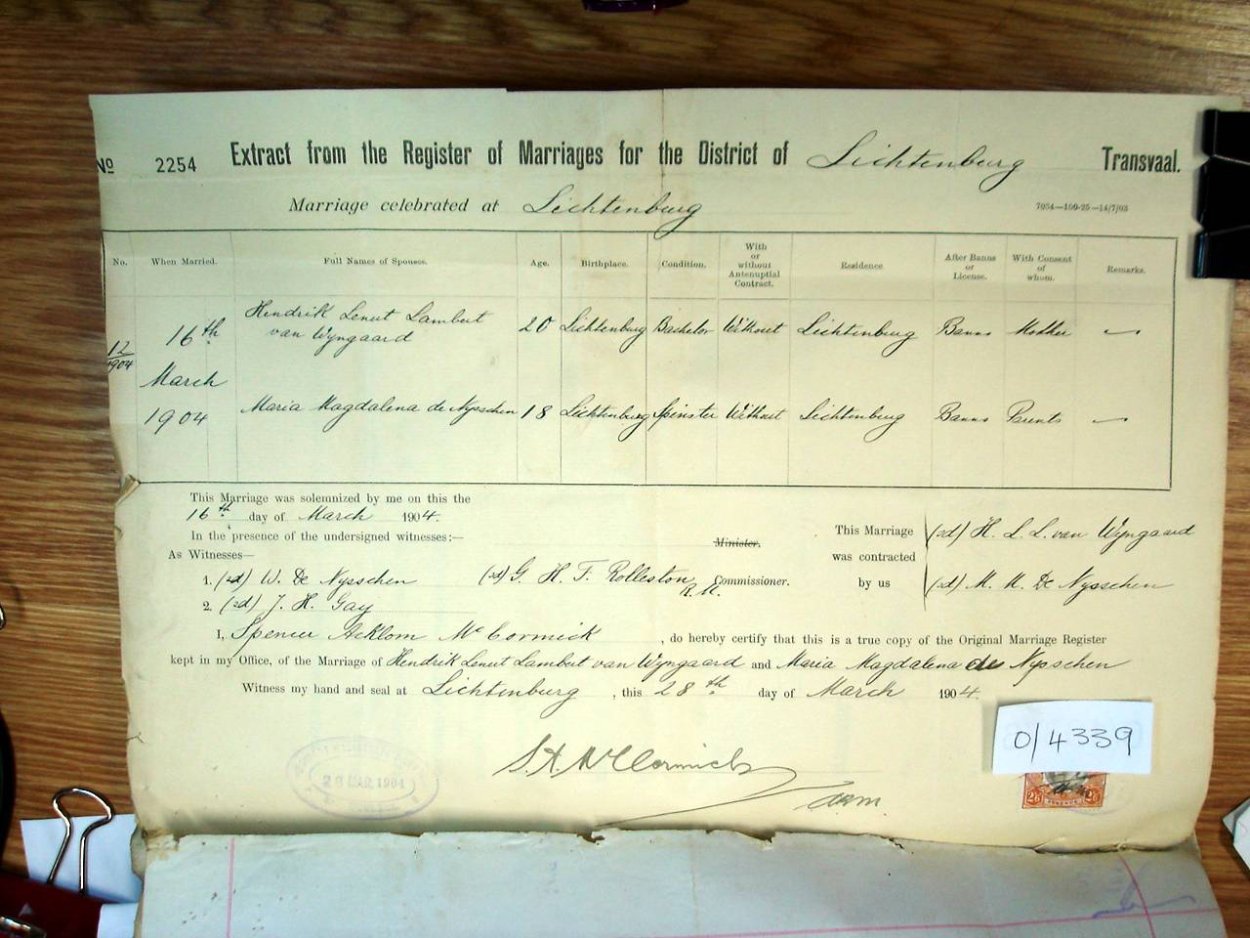 No 2254 Extract from the Register of Marriages for the District of Lichtenburg Transvaal.
Marriage celebrated at Lichtenburg 7054—100-25—14/7/03
No. When Married. Full Names of Spouses. Age. Birthplace. Condition. With or without Antenuptial Contract. Residence After Banns or License. With Consent of whom. Remarks.
12/1904 16th March 1904
Hendrik Lenut Lambert van Wyngaard 20 Lichtenburg Bachelor Without Lichtenburg Banns Mother —
Maria Magdalena de Nysschen 18 Lichtenburg Spinster Without Lichtenburg Banns Parents —
This Marriage was solemnized by me on this the
16th day of March 1904.
In the presence of the undersigned witnesses:—
As Witnesses—
1. (sd) W. De Nysschen
2. (sd) J. H. Gay
(sd) G. H. T. Rolleston
R.M.
Minister.
Commissioner.
This Marriage was contracted by us
(sd) H. L. L. van Wyngaard
(sd) M. M. De Nysschen
I, Spencer Acklom McCormick, do hereby certify that this is a true copy of the Original Marriage Register
kept in my Office, of the Marriage of Hendrik Lenut Lambert van Wyngaard and Maria Magdalena de Nysschen
Witness my hand and seal at Lichtenburg, this 28th day of March 1904.
S. A. McCormick
28 MAR. 1904
0/4339
2/6 2/6